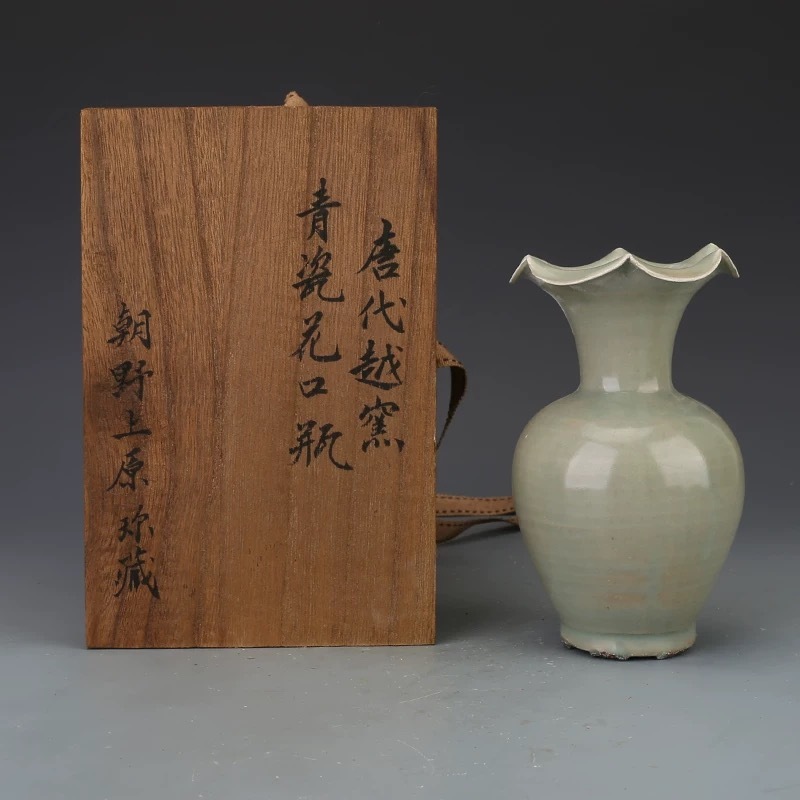 唐代越窯
青瓷花口瓶
朝野上原珎藏